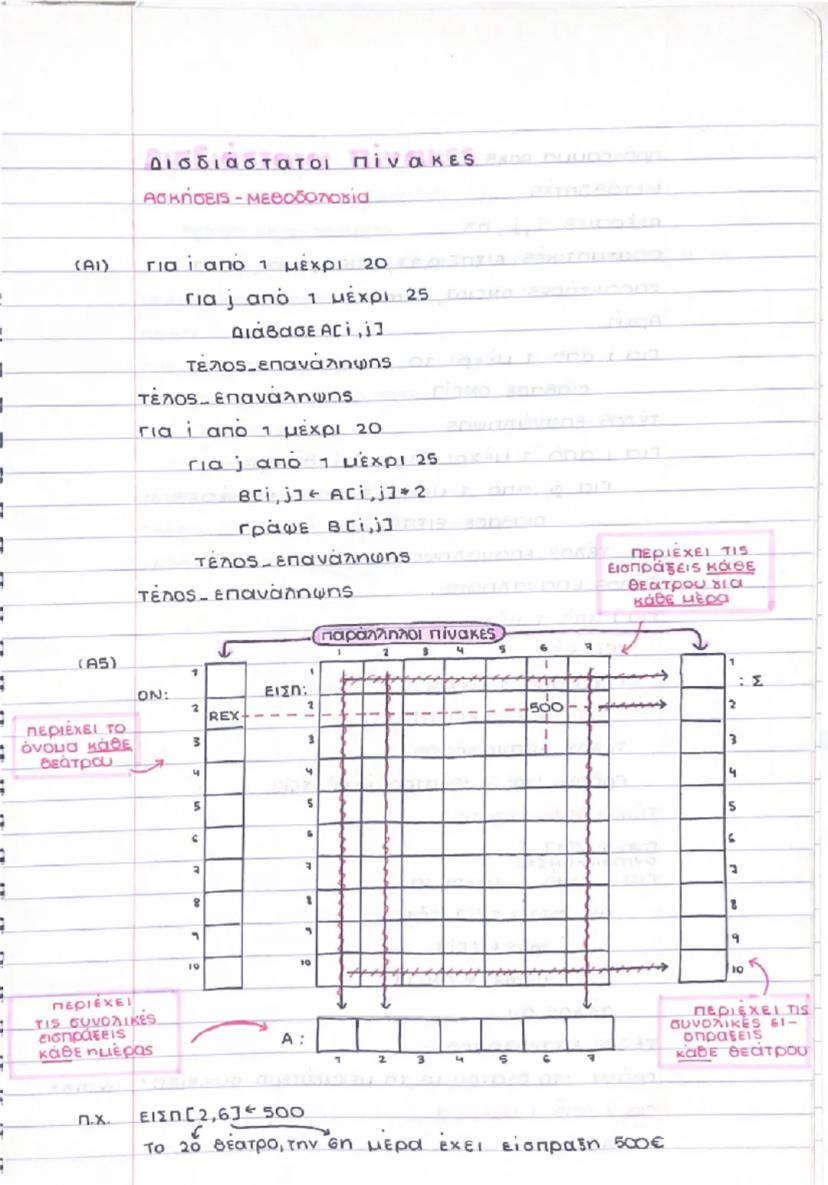 Δισδιάστατοι πίνακες
Ασκήσεις - Μεθοδολογία
(Α1) Για i από 1 μέχρι 20
Για j από 1 μέχρι 25
Διάβασε Α[i,j]
Τέλος_επανάληψης
Τέλος_επανάληψης
Για i από 1 μέχρι 20
Για j από 1 μέχρι 25
Β[i,j] ← Α[i,j]*2
Γράψε Β[i,j]
Τέλος_επανάληψης
Τέλος_επανάληψης
περιέχει τις
εισπράξεις κάθε
θεάτρου για
κάθε μέρα
παράλληλοι πίνακες
(Α5)
1 2 3 4 5 6 7
ΟΝ:
1
2 REX
3
4
5
6
7
8
9
10
ΕΙΣΠ:
1
2 500
3
4
5
6
7
8
9
10
: Σ
1
2
3
4
5
6
7
8
9
10
περιέχει το
όνομα κάθε
θεάτρου
περιέχει
τις συνολικές
εισπράξεις
κάθε ημέρας
Α:
1 2 3 4 5 6 7
περιέχει τις
συνολικές ει-
σπράξεις
κάθε θεάτρου
π.χ. ΕΙΣΠ[2,6] ← 500
Το 2ο θέατρο, την 6η μέρα έχει είσπραξη 500€